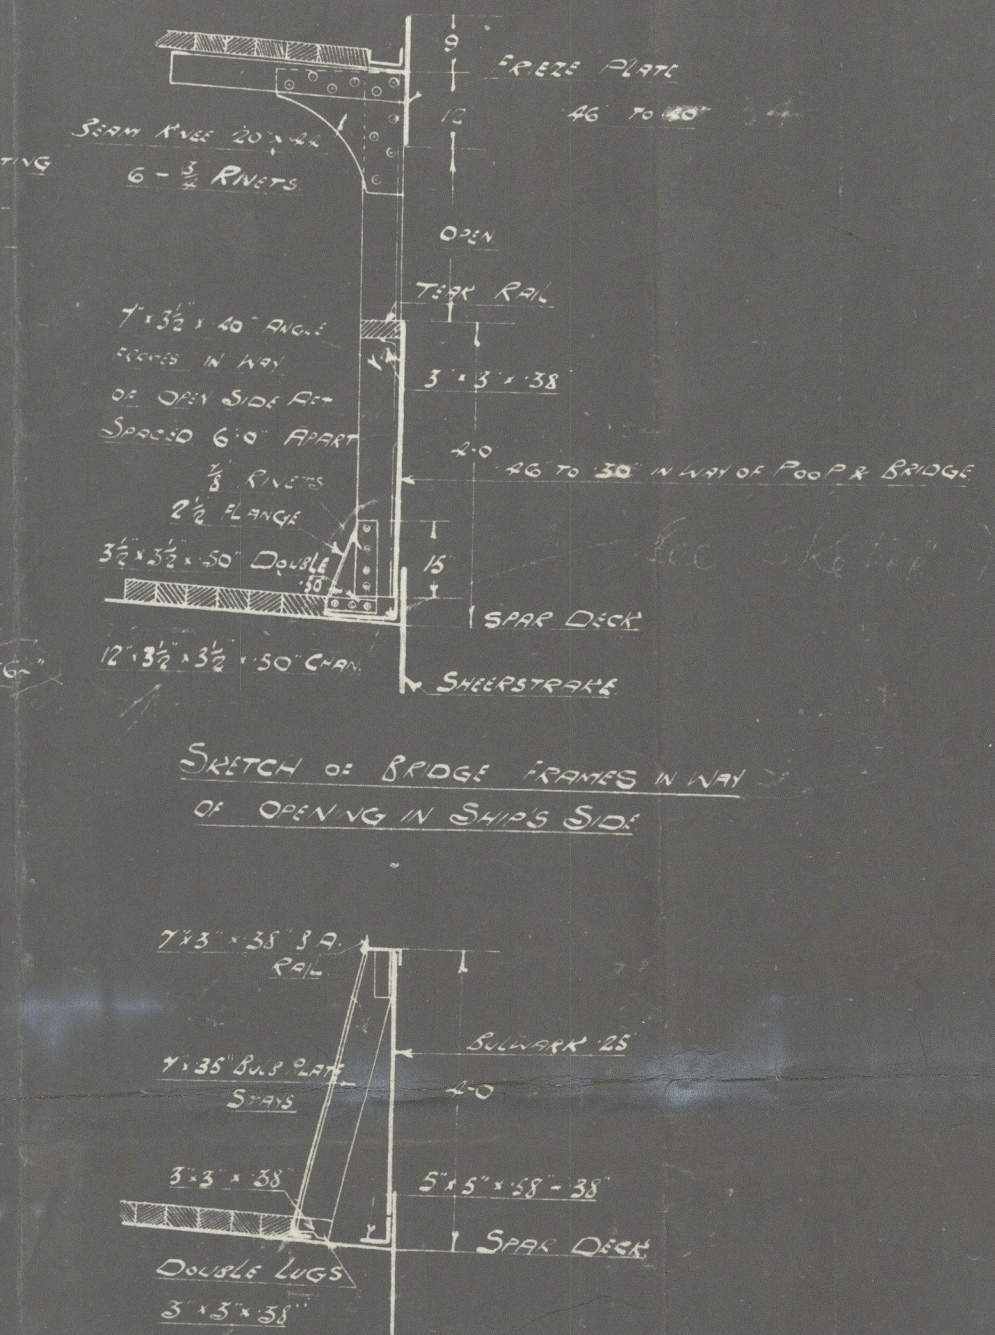 9
FRIEZE PLATE
12
.46 TO
BEAM KNEE 20" x .44
6 - 3/4" RIVETS
TING
OPEN
TEAK RAIL
7" x 3 1/2" x .40" ANGLE
IN WAY
OF OPEN SIDE
SPACED 6'0" APART
3" x 3" x .38"
7/8" RIVETS
4-0
.46 TO 30" IN WAY OF POOP & BRIDGE
2 1/2" FLANGE
3 1/2" x 3 1/2" x .50" DOUBLE
.50"
15"
SPAR DECK
12" x 3 1/2" x 3 1/2" x .50" CHAN.
SHEERSTRAKE
SKETCH OF BRIDGE FRAMES IN WAY
OF OPENING IN SHIP'S SIDE
7" x 3" x .38" B.A.
RAIL
BULWARK .25
7" x .35" BULB PLATE
STAYS
4-0
3" x 3" x .38"
5" x 5" x .58 - .38"
SPAR DECK
DOUBLE LUGS
3" x 3" x .38"